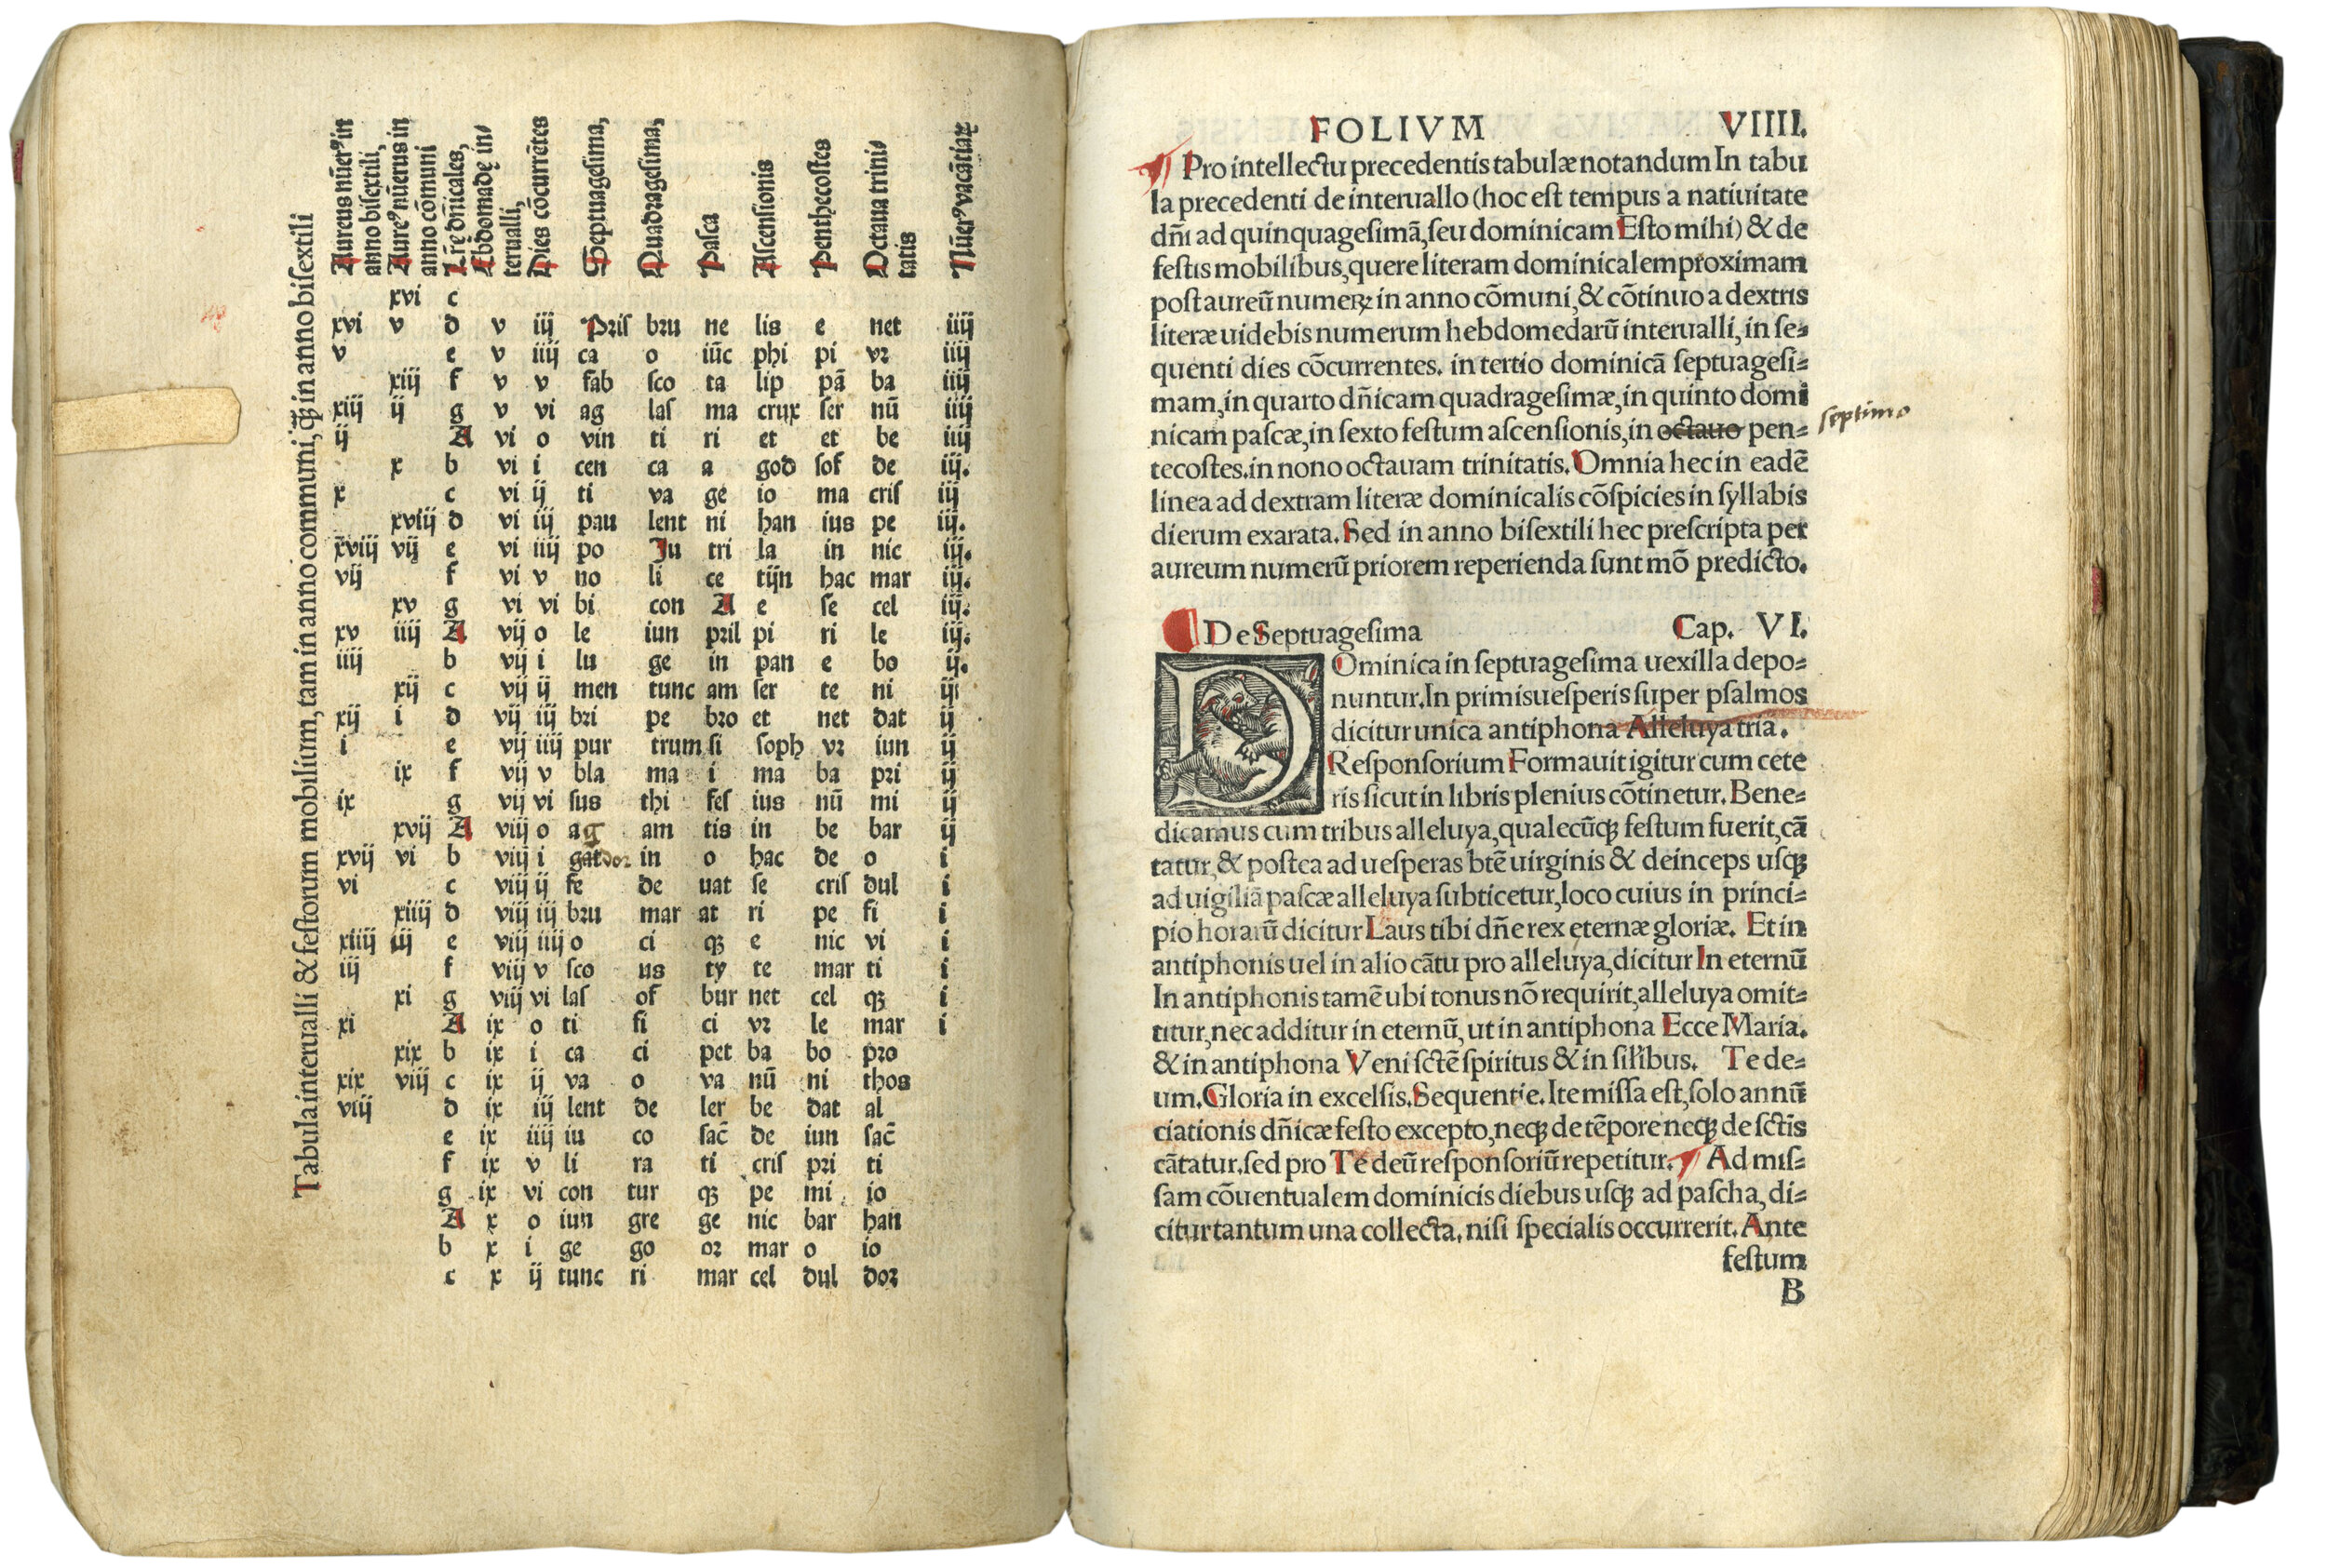 Tabula interualli & festorum mobilium, tam in anno communi, qȝ in anno bisextili
Aureus nūerꝰ in anno bisextili,
Aureꝰ nūerus in anno cōmuni
Lr̄ę dn̄icales,
Ebdomadę interualli,
Dies cōcurrētes
Septuagesima,
Quadragesima,
Pasca
Ascensionis
Penthecostes
Octaua trinitatis
Nūerꝰ vacātiaꝝ
xvi c
xvi v d v iij Pris bru ne lis e net iiij
v e v iiij ca o iūc phi pi vr iiij
xiij f v v fab sco ta lip pā ba iiij
xiij ij g v vi ag las ma crux ser nū iiij
ij A vi o vin ti ri et et be iiij
x b vi i cen ca a god sof de iij.
x c vi ij ti va ge io ma cris iij
xviij d vi iij pau lent ni han ius pe iij.
xviij vij e vi iiij po Ju tri la in nic iij.
vij f vi v no li ce tijn hac mar iij.
xv g vi vi bi con A e se cel iij.
xv iiij A vij o le iun pril pi ri le iij.
iiij b vij i lu ge in pan e bo ij.
xij c vij ij men tunc am ser te ni ij
xij i d vij iij bri pe bro et net dat ij
i e vij iiij pur trum si soph vr iun ij
ix f vij v bla ma i ma ba pri ij
ix g vij vi sus thi fes ius nū mi ij
xvij A viij o ag am tis in be bar ij
xvij vi b viij i gat dor in o hac de o i
vi c viij ij fe de uat se cris dul i
xiiij d viij iij bru mar at ri pe fi i
xiiij iij e viij iiij o ci qȝ e nic vi i
iij f viij v sco us ty te mar ti i
xi g viij vi las of bur net cel qȝ i
xi A ix o ti fi ci vr le mar i
xix b ix i ca ci pet ba bo pro
xix viij c ix ij va o va nū ni thos
viij d ix iij lent de ler be dat al
e ix iiij iu co sac̄ de iun sac̄
f ix v li ra ti cris pri ti
g ix vi con tur qȝ pe mi io
A x o iun gre ge nic bar han
b x i ge go or mar o io
c x ij tunc ri mar cel dul dor
FOLIVM VIIII.
¶ Pro intellectu precedentis tabulæ notandum In tabu
la precedenti de interuallo (hoc est tempus a natiuitate
dn̄i ad quinquagesimā, seu dominicam Esto mihi) & de
festis mobilibus, quere literam dominicalem proximam
post aureū numeꝝ in anno cōmuni, & cōtinuo a dextris
literæ uidebis numerum hebdomedarū interualli, in se=
quenti dies cōcurrentes. in tertio dominicā septuagesi=
mam, in quarto dn̄icam quadragesimæ, in quinto domi
nicam pascæ, in sexto festum ascensionis, in octauo pen= septimo
tecostes. in nono octauam trinitatis. Omnia hec in eadē
linea ad dextram literæ dominicalis cōspicies in syllabis
dierum exarata. Sed in anno bisextili hec prescripta per
aureum numerū priorem reperienda sunt mō predicto.
De Septuagesima Cap. VI.
DOminica in septuagesima uexilla depo=
nuntur. In primis uesperis super psalmos
dicitur unica antiphona Alleluya tria.
Responsorium Formauit igitur cum cete
ris sicut in libris plenius cōtinetur. Bene=
dicamus cum tribus alleluya, qualecūqȝ festum fuerit, cā
tatur, & postea ad uesperas btē uirginis & deinceps usqȝ
ad uigiliā pascæ alleluya subticetur, loco cuius in princi=
pio horarū dicitur Laus tibi dn̄e rex eternæ gloriæ. Et in
antiphonis uel in alio cātu pro alleluya, dicitur In eternū
In antiphonis tamē ubi tonus nō requirit, alleluya omit=
titur, nec additur in eternū, ut in antiphona Ecce Maria.
& in antiphona Veni sctē spiritus & in sil̄ibus. Te de=
um. Gloria in excelsis. Sequentie. Ite missa est, solo annū
ciationis dn̄icæ festo excepto, neqȝ de tēpore neqȝ de sctis
cātatur. sed pro Te deū responsoriū repetitur. ¶ Ad mis=
sam cōuentualem dominicis diebus usqȝ ad pascha, di=
citur tantum una collecta, nisi specialis occurrerit. Ante
festum
B